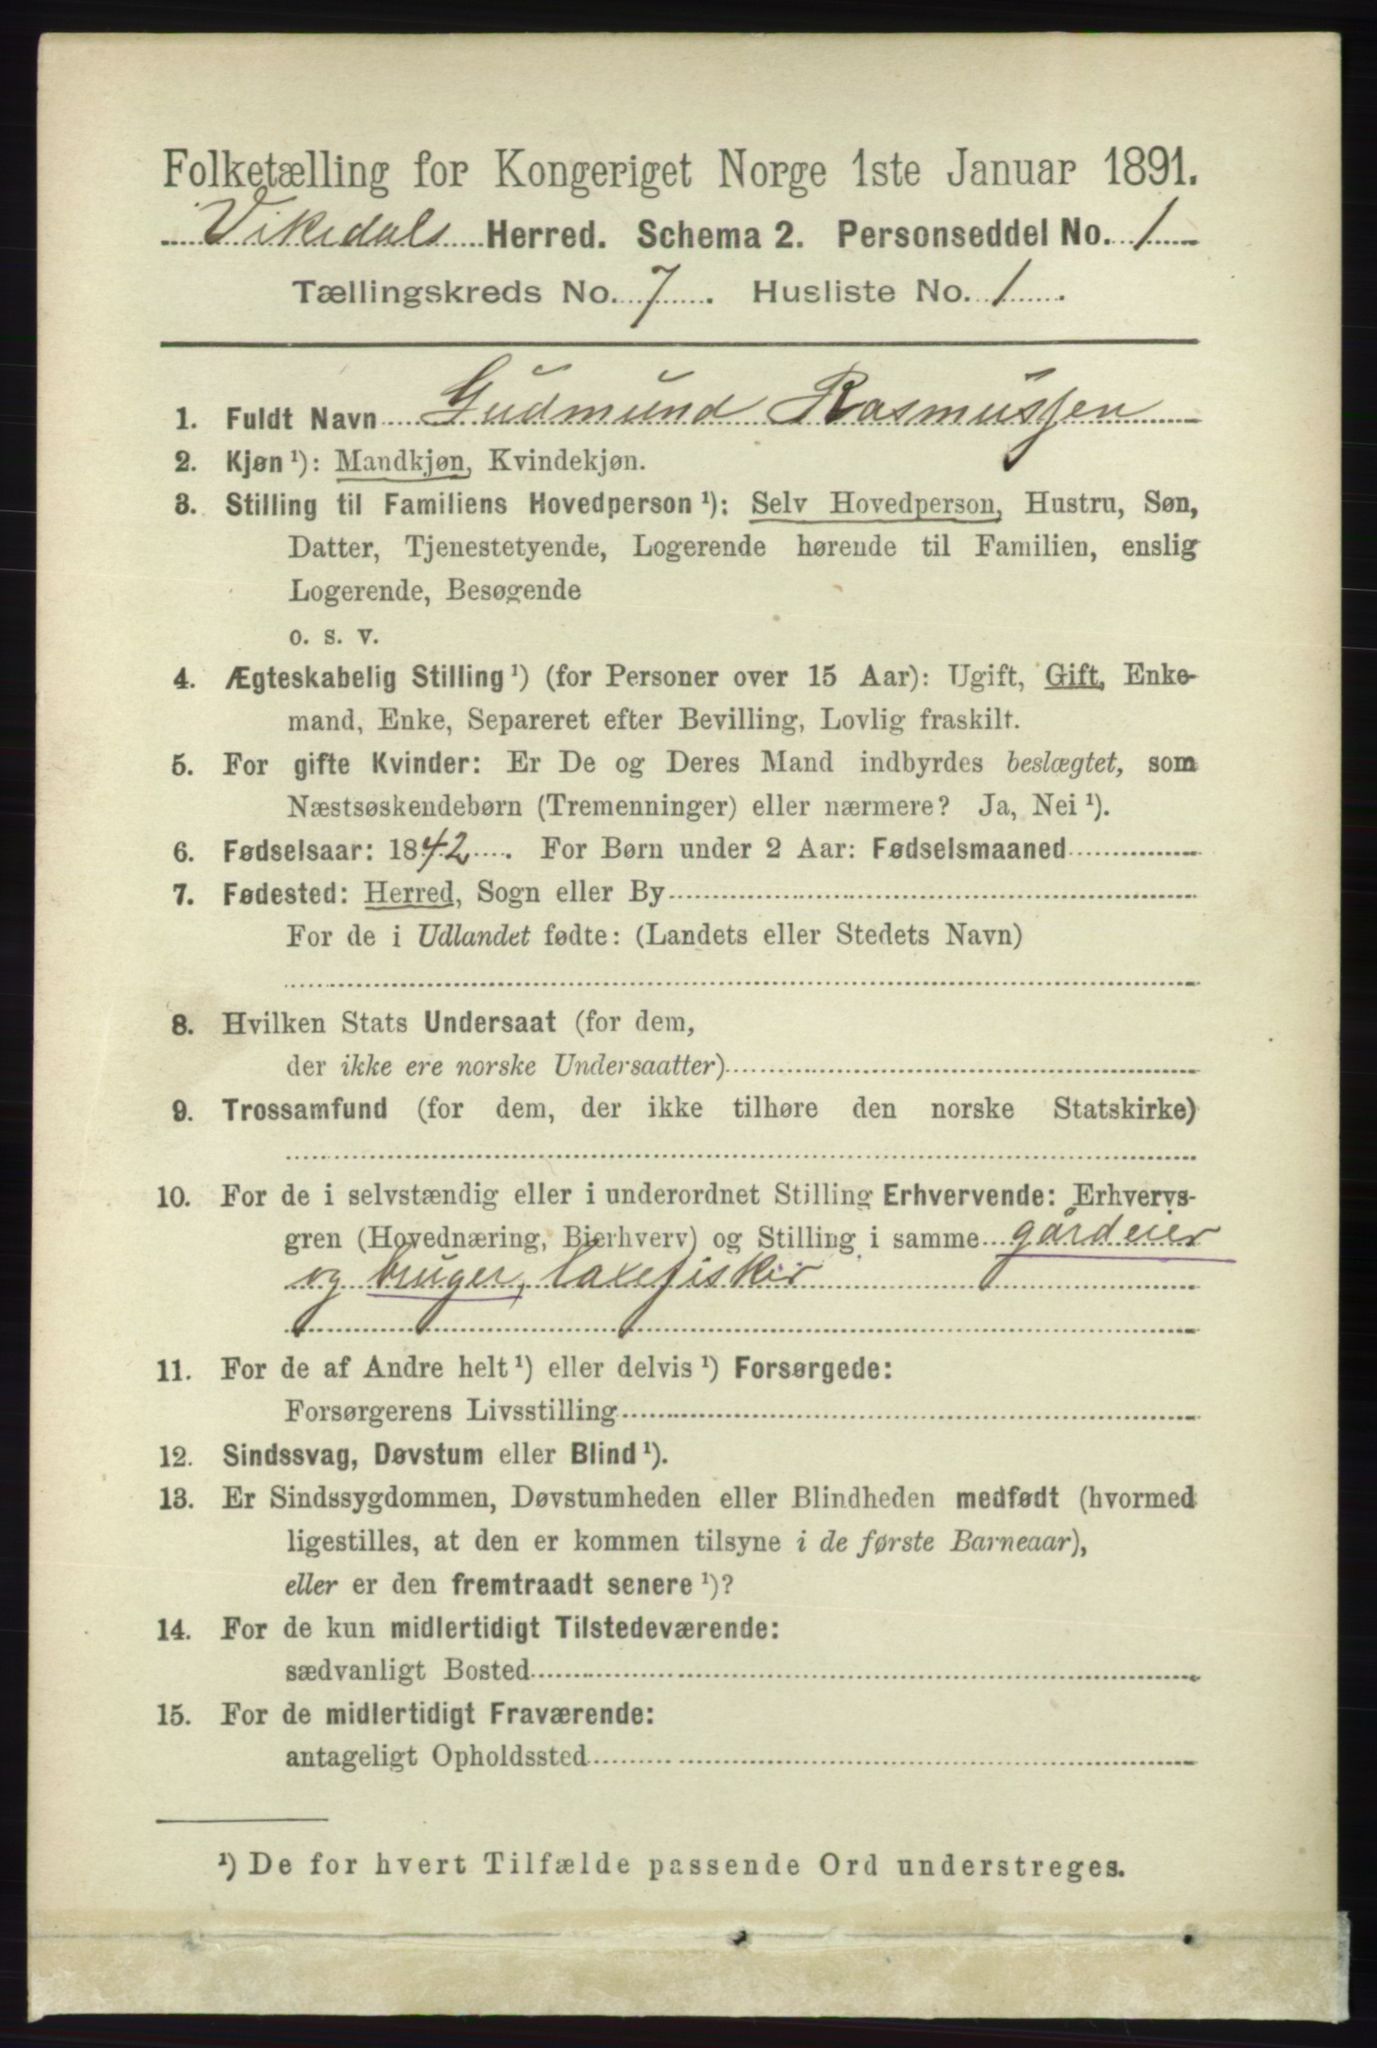 Folketælling for Kongeriget Norge 1ste Januar 1891.
Vikedals Herred. Schema 2. Personseddel No. 1
Tællingskreds No. 7. Husliste No. 1.
1. Fuldt Navn Gudmund Rasmussen
2. Kjøn ¹): Mandkjøn, Kvindekjøn.
3. Stilling til Familiens Hovedperson ¹): Selv Hovedperson, Hustru, Søn,
Datter, Tjenestetyende, Logerende hørende til Familien, enslig
Logerende, Besøgende
o. s. v.
4. Ægteskabelig Stilling ¹) (for Personer over 15 Aar): Ugift, Gift, Enke-
mand, Enke, Separeret efter Bevilling, Lovlig fraskilt.
5. For gifte Kvinder: Er De og Deres Mand indbyrdes beslægtet, som
Næstsøskendebørn (Tremenninger) eller nærmere? Ja, Nei ¹).
6. Fødselsaar: 1842. For Børn under 2 Aar: Fødselsmaaned
7. Fødested: Herred, Sogn eller By
For de i Udlandet fødte: (Landets eller Stedets Navn)
8. Hvilken Stats Undersaat (for dem,
der ikke ere norske Undersaatter)
9. Trossamfund (for dem, der ikke tilhøre den norske Statskirke)
10. For de i selvstændig eller i underordnet Stilling Erhvervende: Erhvervs-
gren (Hovednæring, Bierhverv) og Stilling i samme gårdeier
og bruger, laxefisker
11. For de af Andre helt ¹) eller delvis ¹) Forsørgede:
Forsørgerens Livsstilling
12. Sindssvag, Døvstum eller Blind ¹).
13. Er Sindssygdommen, Døvstumheden eller Blindheden medfødt (hvormed
ligestilles, at den er kommen tilsyne i de første Barneaar),
eller er den fremtraadt senere ¹)?
14. For de kun midlertidigt Tilstedeværende:
sædvanligt Bosted
15. For de midlertidigt Fraværende:
antageligt Opholdssted
¹) De for hvert Tilfælde passende Ord understreges.